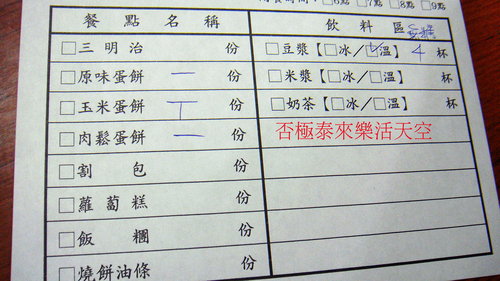 □6點 □7點 □8點 □9點
餐點名稱 飲料區
□三明治 份 □豆漿【□冰/□溫】 4 杯
□原味蛋餅 一 份 □米漿【□冰/□溫】 杯
□玉米蛋餅 丅 份 □奶茶【□冰/□溫】 杯
□肉鬆蛋餅 一 份
否極泰來樂活天空
□割包 份
□蘿蔔糕 份
□飯糰 份
□燒餅油條 份